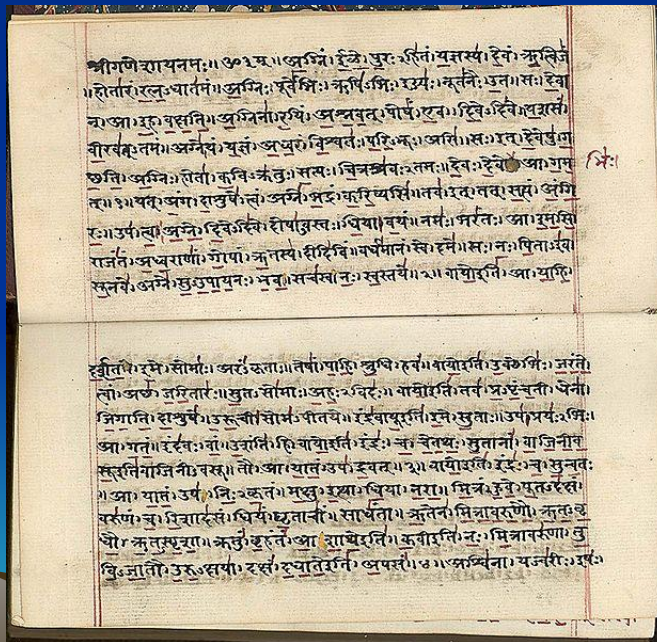 श्रीगणेशायनमः॥ ॐ३म्॥ अ॒ग्निं। ई॒ळे॒। पु॒रःऽहि॑तं। य॒ज्ञस्य॑। दे॒वं। ऋ॒त्विजं॑
।होता॑रं। र॒त्न॒ऽधात॑मं। अ॒ग्निः। पूर्वे॑भिः। ऋषि॑ऽभिः। ईड्यः॑। नूत॑नैः। उ॒त। सः। दे॒वा
न्। आ। इ॒ह। व॒क्ष॒ति॒। अ॒ग्निना॑। र॒यिं। अ॒श्न॒व॒त्। पोषं॑। ए॒व। दि॒वेऽदि॑वे। य॒शसं॑
वी॒रव॑त्ऽतमं। अग्ने॑। यं। य॒ज्ञं। अ॒ध्व॒रं। वि॒श्वतः॑। प॒रि॒ऽभूः। असि॑। सः। इत्। दे॒वेषु॑। ग
च्छ॒ति॒। अ॒ग्निः। होता॑। क॒विऽक्र॑तुः। स॒त्यः। चि॒त्रश्र॑वःऽतमः। दे॒वः। दे॒वे आ। ग॒म॒ भिः।
त्॥१॥ यत्। अं॒ग। दा॒शुषे॑। त्वं। अग्ने॑। भ॒द्रं। क॒रि॒ष्यसि॑। तव॑। इत्। तत्। स॒त्यं। अं॒गि॒
रः॒। उप॑। त्वा॒। अ॒ग्ने॒। दि॒वेऽदि॑वे। दोषा॑ऽवस्तः। धि॒या। व॒यं। नमः॑। भरं॑तः। आ। इ॒म॒सि॒
राजं॑तं। अ॒ध्व॒राणां॑। गो॒पां। ऋ॒तस्य॑। दीदि॑विं। वर्ध॑मानं। स्वे। दमे॑। सः। नः॒। पि॒ताऽइ॑व
सू॒नवे॑। अग्ने॑। सु॒ऽउ॒पा॒य॒नः। भ॒व॒। सच॑स्व। नः॒। स्व॒स्तये॑॥२॥ वायो॒इति॑। आ। या॒हि॒।
द॒र्श॒त॒। इ॒मे। सोमाः॑। अरं॑ऽकृताः। तेषां॑। पा॒हि॒। श्रु॒धि। हवं॑। वायो॒इति॑। उ॒क्थेभिः॑। जरं॑ते
त्वां। अच्छ॑। ज॒रि॒तारः॑। सु॒तऽसो॑माः। अ॒हः॒ऽविदः॑। वायो॒इति॑। तव॑। प्र॒ऽपृं॒च॒ती। धेना॑
जि॒गा॒ति॒। दा॒शुषे॑। उ॒रू॒ची। सोम॑ऽपीतये। इंद्र॑वायू॒इति॑। इ॒मे। सु॒ताः। उप॑। प्रयः॑ऽभिः।
आ। ग॒तं॒। इंद॑वः। वां॒। उ॒शंति॑। हि। वायो॒इति॑। इंद्रः॑। च॒। चे॒त॒थः॒। सु॒तानां॑। वा॒जि॒नी॒व॒
सू॒इति॑वाजिनीवसू। तौ। आ। या॒तं॒। उप॑। द्र॒वत्॥३॥ वायो॒इति॑। इंद्रः॑। च॒। सु॒न्व॒तः
॥ आ। या॒तं॒। उप॑। निः॒ऽकृ॒तं। म॒क्षु। इ॒त्था। धि॒या। न॒रा॒। मि॒त्रं। हु॒वे॒। पू॒तऽद॑क्षं
वरु॑णं। च॒। रि॒शाद॑सं। धियं॑। घृ॒ताचीं॑। साधं॑ता। ऋ॒तेन॑। मि॒त्रा॒व॒रु॒णौ॒। ऋ॒त॒ऽवृ॒
धौ॒। ऋ॒त॒ऽस्पृ॒शा॒। क्रतुं॑। बृ॒हंतं॑। आ॒शा॒थे॒इति॑। क॒वीइति॑। नः॒। मि॒त्रावरु॑णा। तु॒
वि॒ऽजा॒तौ। उ॒रु॒ऽक्षया॑। दक्षं॑। द॒धा॒ते॒इति॑। अ॒पसं॑॥४॥ अश्वि॑ना। यज्व॑रीः। इषः॑।